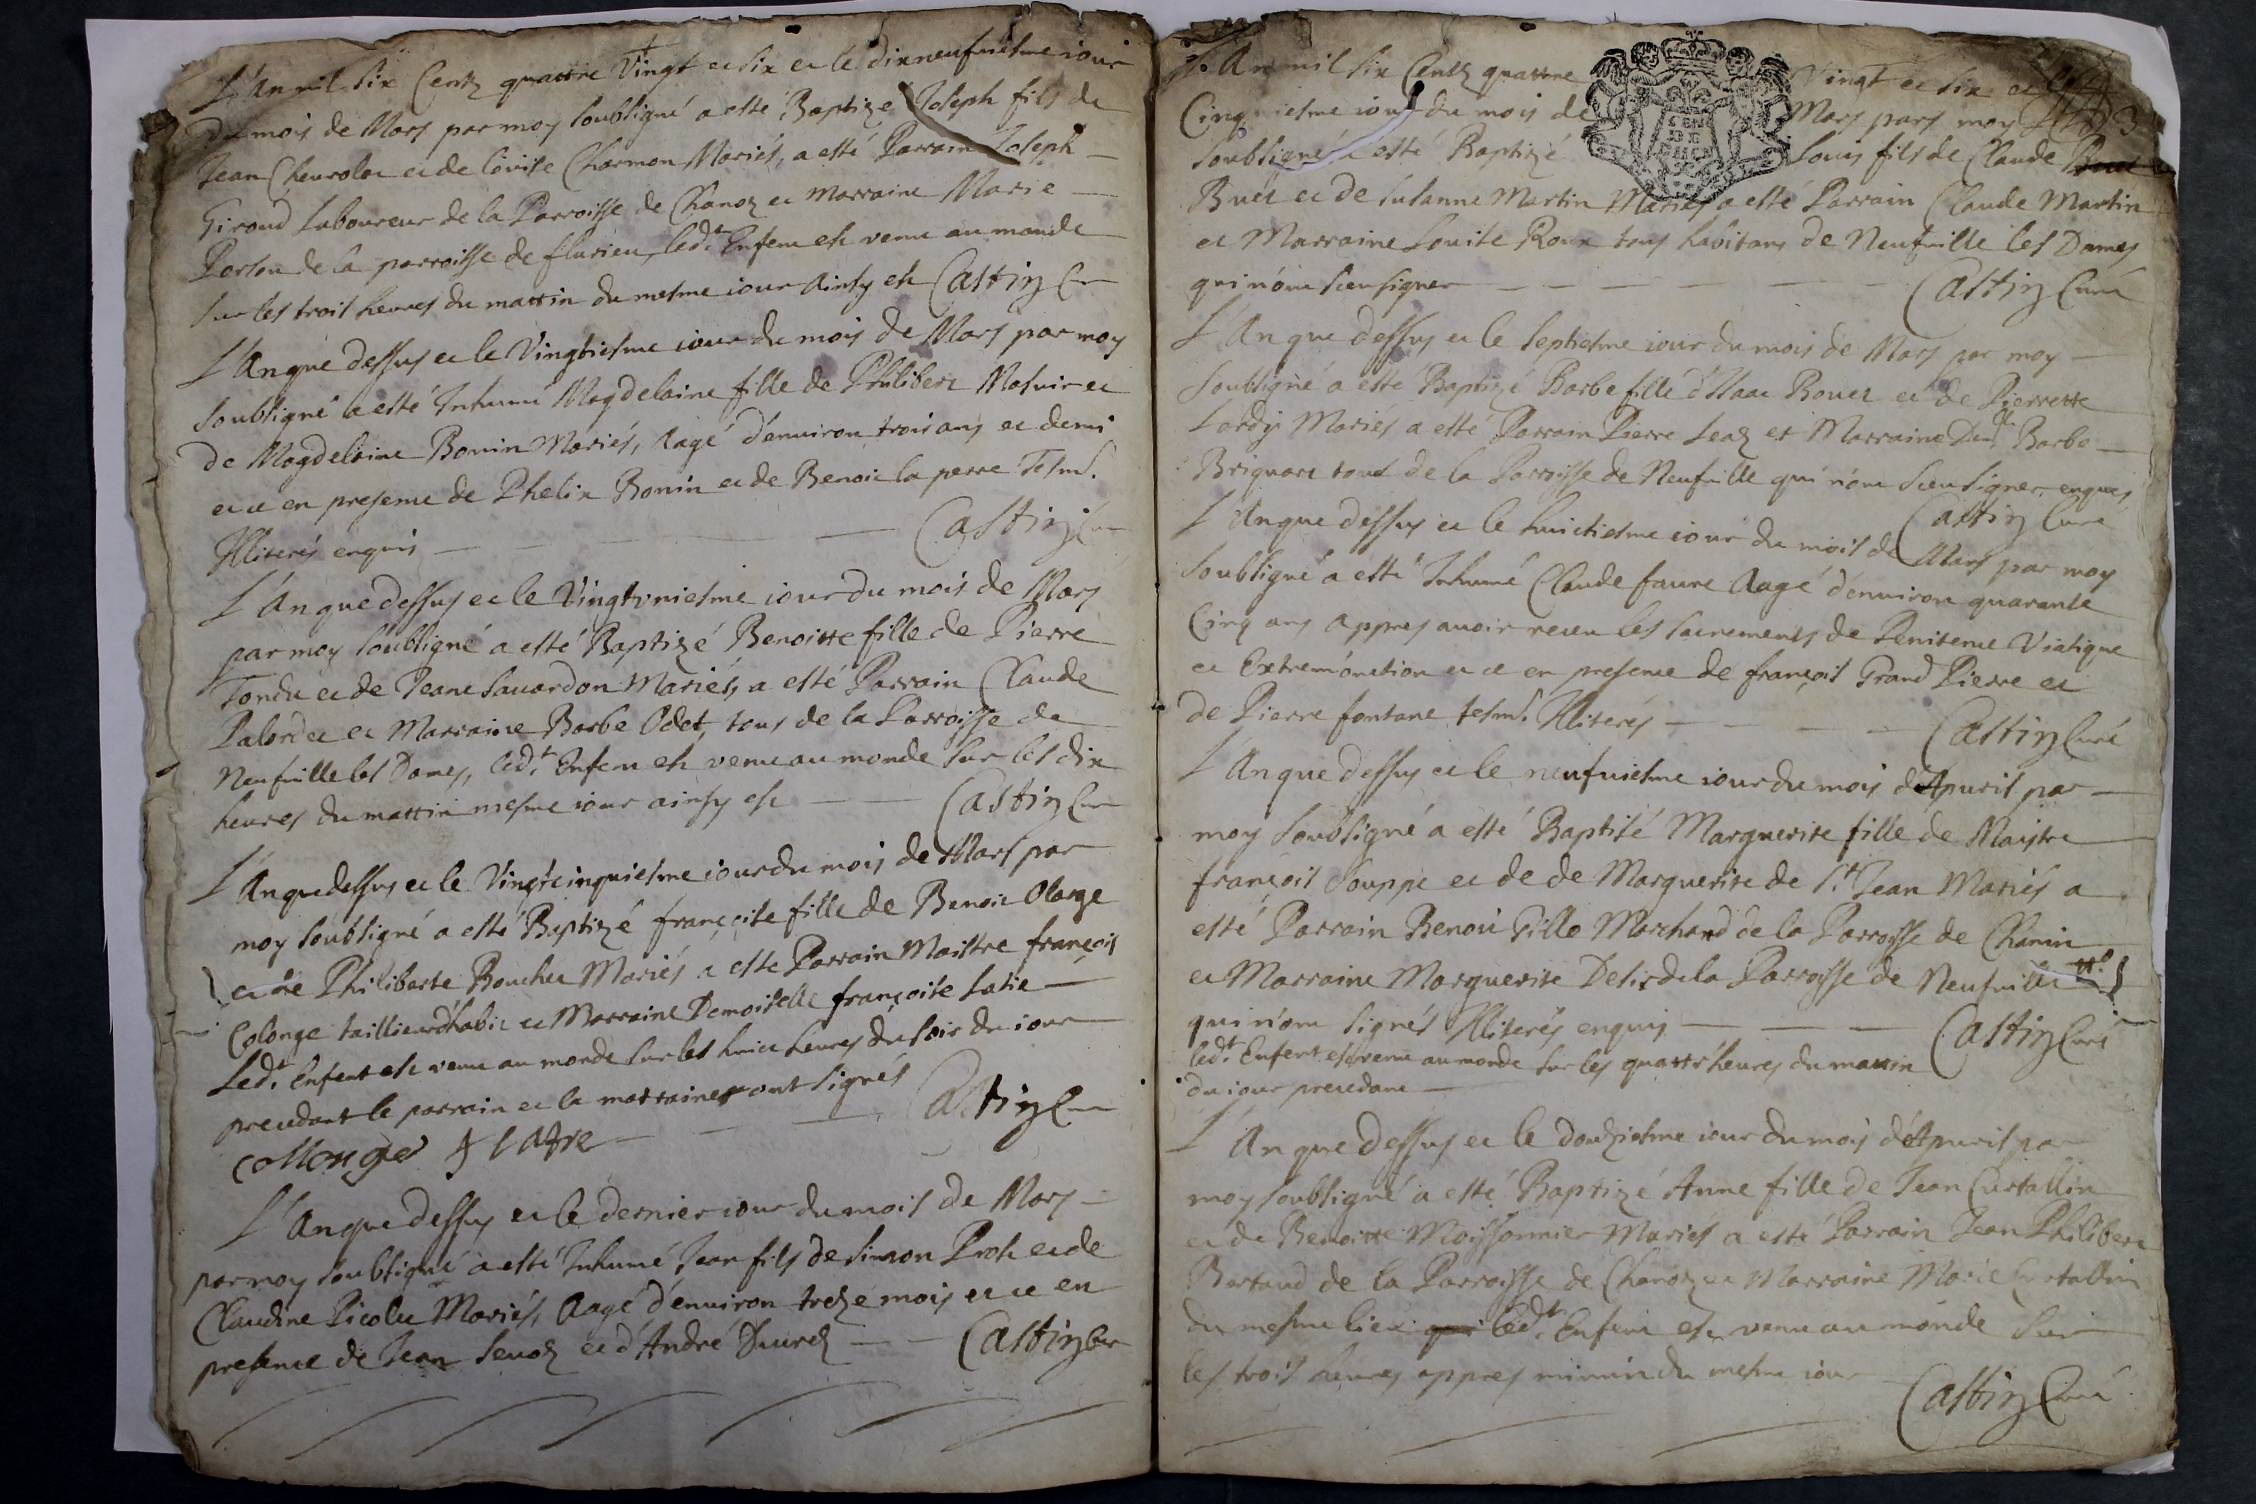 L'An mil six Centz quattre Vingt et six et le dixneufuiesme iour
du mois de Mars par moy soubsigné a esté Baptizé Joseph fils de
Jean Cheurolet et de Lovise Charmon Mariés, a esté Parrain Joseph
Giroud Laboureur de la Parroisse de Chanoz et Marraine Marie
Person de la parroisse de flurieu, led.t Enfent est venu au monde
sur les trois heures du mattin du mesme iour Ainsy est Castin Cur
L'An que dessus et le Vingtiesme iour du mois de Mars par moy
soubsigné a esté Inhumé Magdelaine fille de Philibert et
de Magdelaine Bonin Mariés, Aagé d'enuiron trois ans et demi
et ce en presence de Phelix Bonin et de Benoit la perre Tesm.s
Illiterés enquis Castin Cur
L'An que dessus et le Vingtvniesme iour du mois de Mars
par moy soubsigné a esté Baptizé Benoitte fille de Pierre
Tondu et de Jeane Sauardon Mariés, a esté Parrain Claude
et Marraine Barbe Odet, tous de la Parroisse de
Neufuille les Dames, led.t Enfent est venu au monde sur les dix
heures du mattin mesme iour ainsy est Castin Cur
L'An que dessus et le Vingtcinquiesme iour du mois de Mars par
moy soubsigné a esté Baptizé françoise fille de Benoit Olange
et de Philiberte Bouchet Mariés a esté Parrain Maistre françois
Colonge taillieur d'habit et Marraine Demoiselle françoise Satie
Led.t Enfent est venu au monde sur les huict heures du soir du iour
precedant le parrain et la marraine ont signés Castin Cur
collonge f l
L'An que dessus et le dernier iour du mois de Mars
par moy soubsigné a esté Inhumé Jean fils de Simon Prost et de
Claudine Picolet Mariés, Aagé d'enuiron treize mois et ce en
presence de Jean et d'André Castin Cur
L'An mil six Centz quattre Vingt et six et le
Cinquiesme iour du mois de Mars pars moy
soubsigné a esté Baptizé Louis fils de Claude
Buet et de Susanne Martin Mariés a esté Parrain Claude Martin
et Marraine Louise Roux tous habitans de Neufuille les Dames
qui n'ont sceu signer Castin Curé
L'An que dessus et le septiesme iour du mois de Mars par moy
soubsigné a esté Baptizé Barbe fille d'Isaac Bouet et de Pierrette
Lardy Mariés a esté Parrain Pierre et Marraine Dem.lle Barbe
Briquart tous de la Parroisse de Neufuille qui n'ont sceu signer enquis
Castin Curé
L'An que dessus et le huictiesme iour du mois de Mars par moy
soubsigné a esté Inhumé Claude faure Aagé d'enuiron quarante
Cinq ans appres auoir receu les sacrements de Penitence Viatique
et Extremónction et ce en presence de françois Grand Pierre et
de Pierre fontane tesm.s Illiterés Castin Curé
L'An que dessus et le neufuiesme iour du mois d'Apuril par
moy soubsigné a esté Baptisé Marguerite fille de Maistre
françois Souppe et de de Marguerite de St Jean Mariés a
esté Parrain Benoit Gille Marchand de la Parroisse de Chanin
et Marraine Marguerite de la Parroisse de Neufuille
qui n'ont signés Illiterés enquis Castin Curé
led.t Enfent est venu au monde sur les quattr'heures du mattin
du iour precedant
L'An que dessus et le douziesme iour du mois d'Apuril par
moy soubsigné a esté Baptizé Anne fille de Jean Curtallin
et de Benoitte Moissonnier Mariés a esté Parrain Jean Philibert
Bertaud de la Parroisse de Chanoz et Marraine Marie Curtallin
du mesme lieu led.t Enfent est venu au monde sur
les trois heures appres minuit du mesme iour
Castin Curé